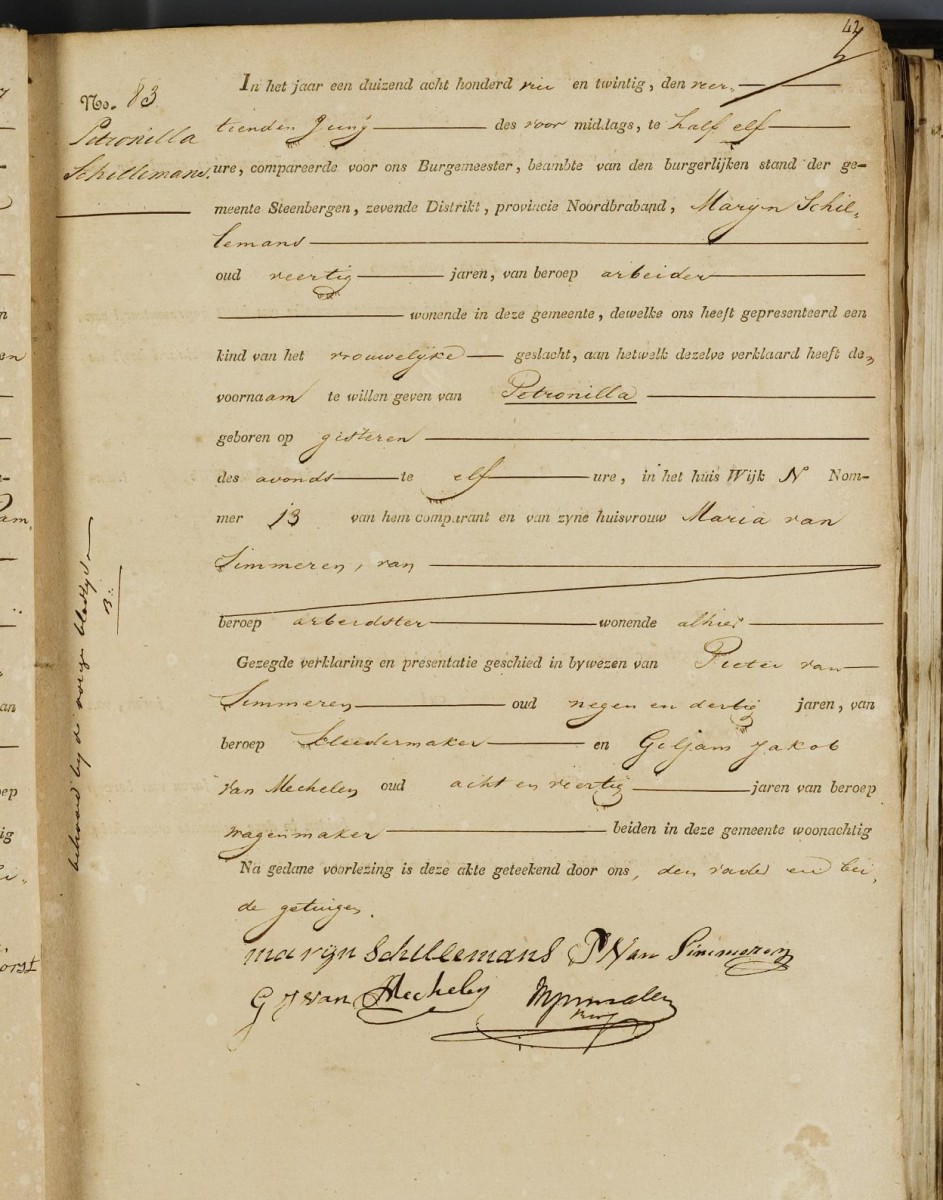 42
No. 83
Petronilla
Schillemans.
In het jaar een duizend acht honderd vier en twintig, den veer-
tienden Junij des voor middags, te half elf
ure, compareerde voor ons Burgemeester, beambte van den burgerlijken stand der ge-
meente Steenbergen, zevende Distrikt, provincie Noordbraband, Marijn Schil-
lemans
oud veertig jaren, van beroep arbeider
wonende in deze gemeente, dewelke ons heeft gepresenteerd een
kind van het vrouwelijke geslacht, aan hetwelk dezelve verklaard heeft de
voornaam te willen geven van Petronilla
geboren op gisteren
des avonds te elf ure, in het huis Wijk N Nom-
mer 13 van hem comparant en van zyne huisvrouw Maria van
Simmeren, van
beroep arbeidster wonende alhier
Gezegde verklaring en presentatie geschied in bywezen van Pieter van
Simmeren oud negen en dertig jaren, van
beroep kleedermaker en Geljam Jakob
van Mechelen oud acht en veertig jaren van beroep
wagenmaker beiden in deze gemeente woonachtig
Na gedane voorlezing is deze akte geteekend door ons, den vader en bei-
de getuigen.
marijn Schillemans P Van Simmeren
G J van Mechelen
behoord bij de vorige bladzyde